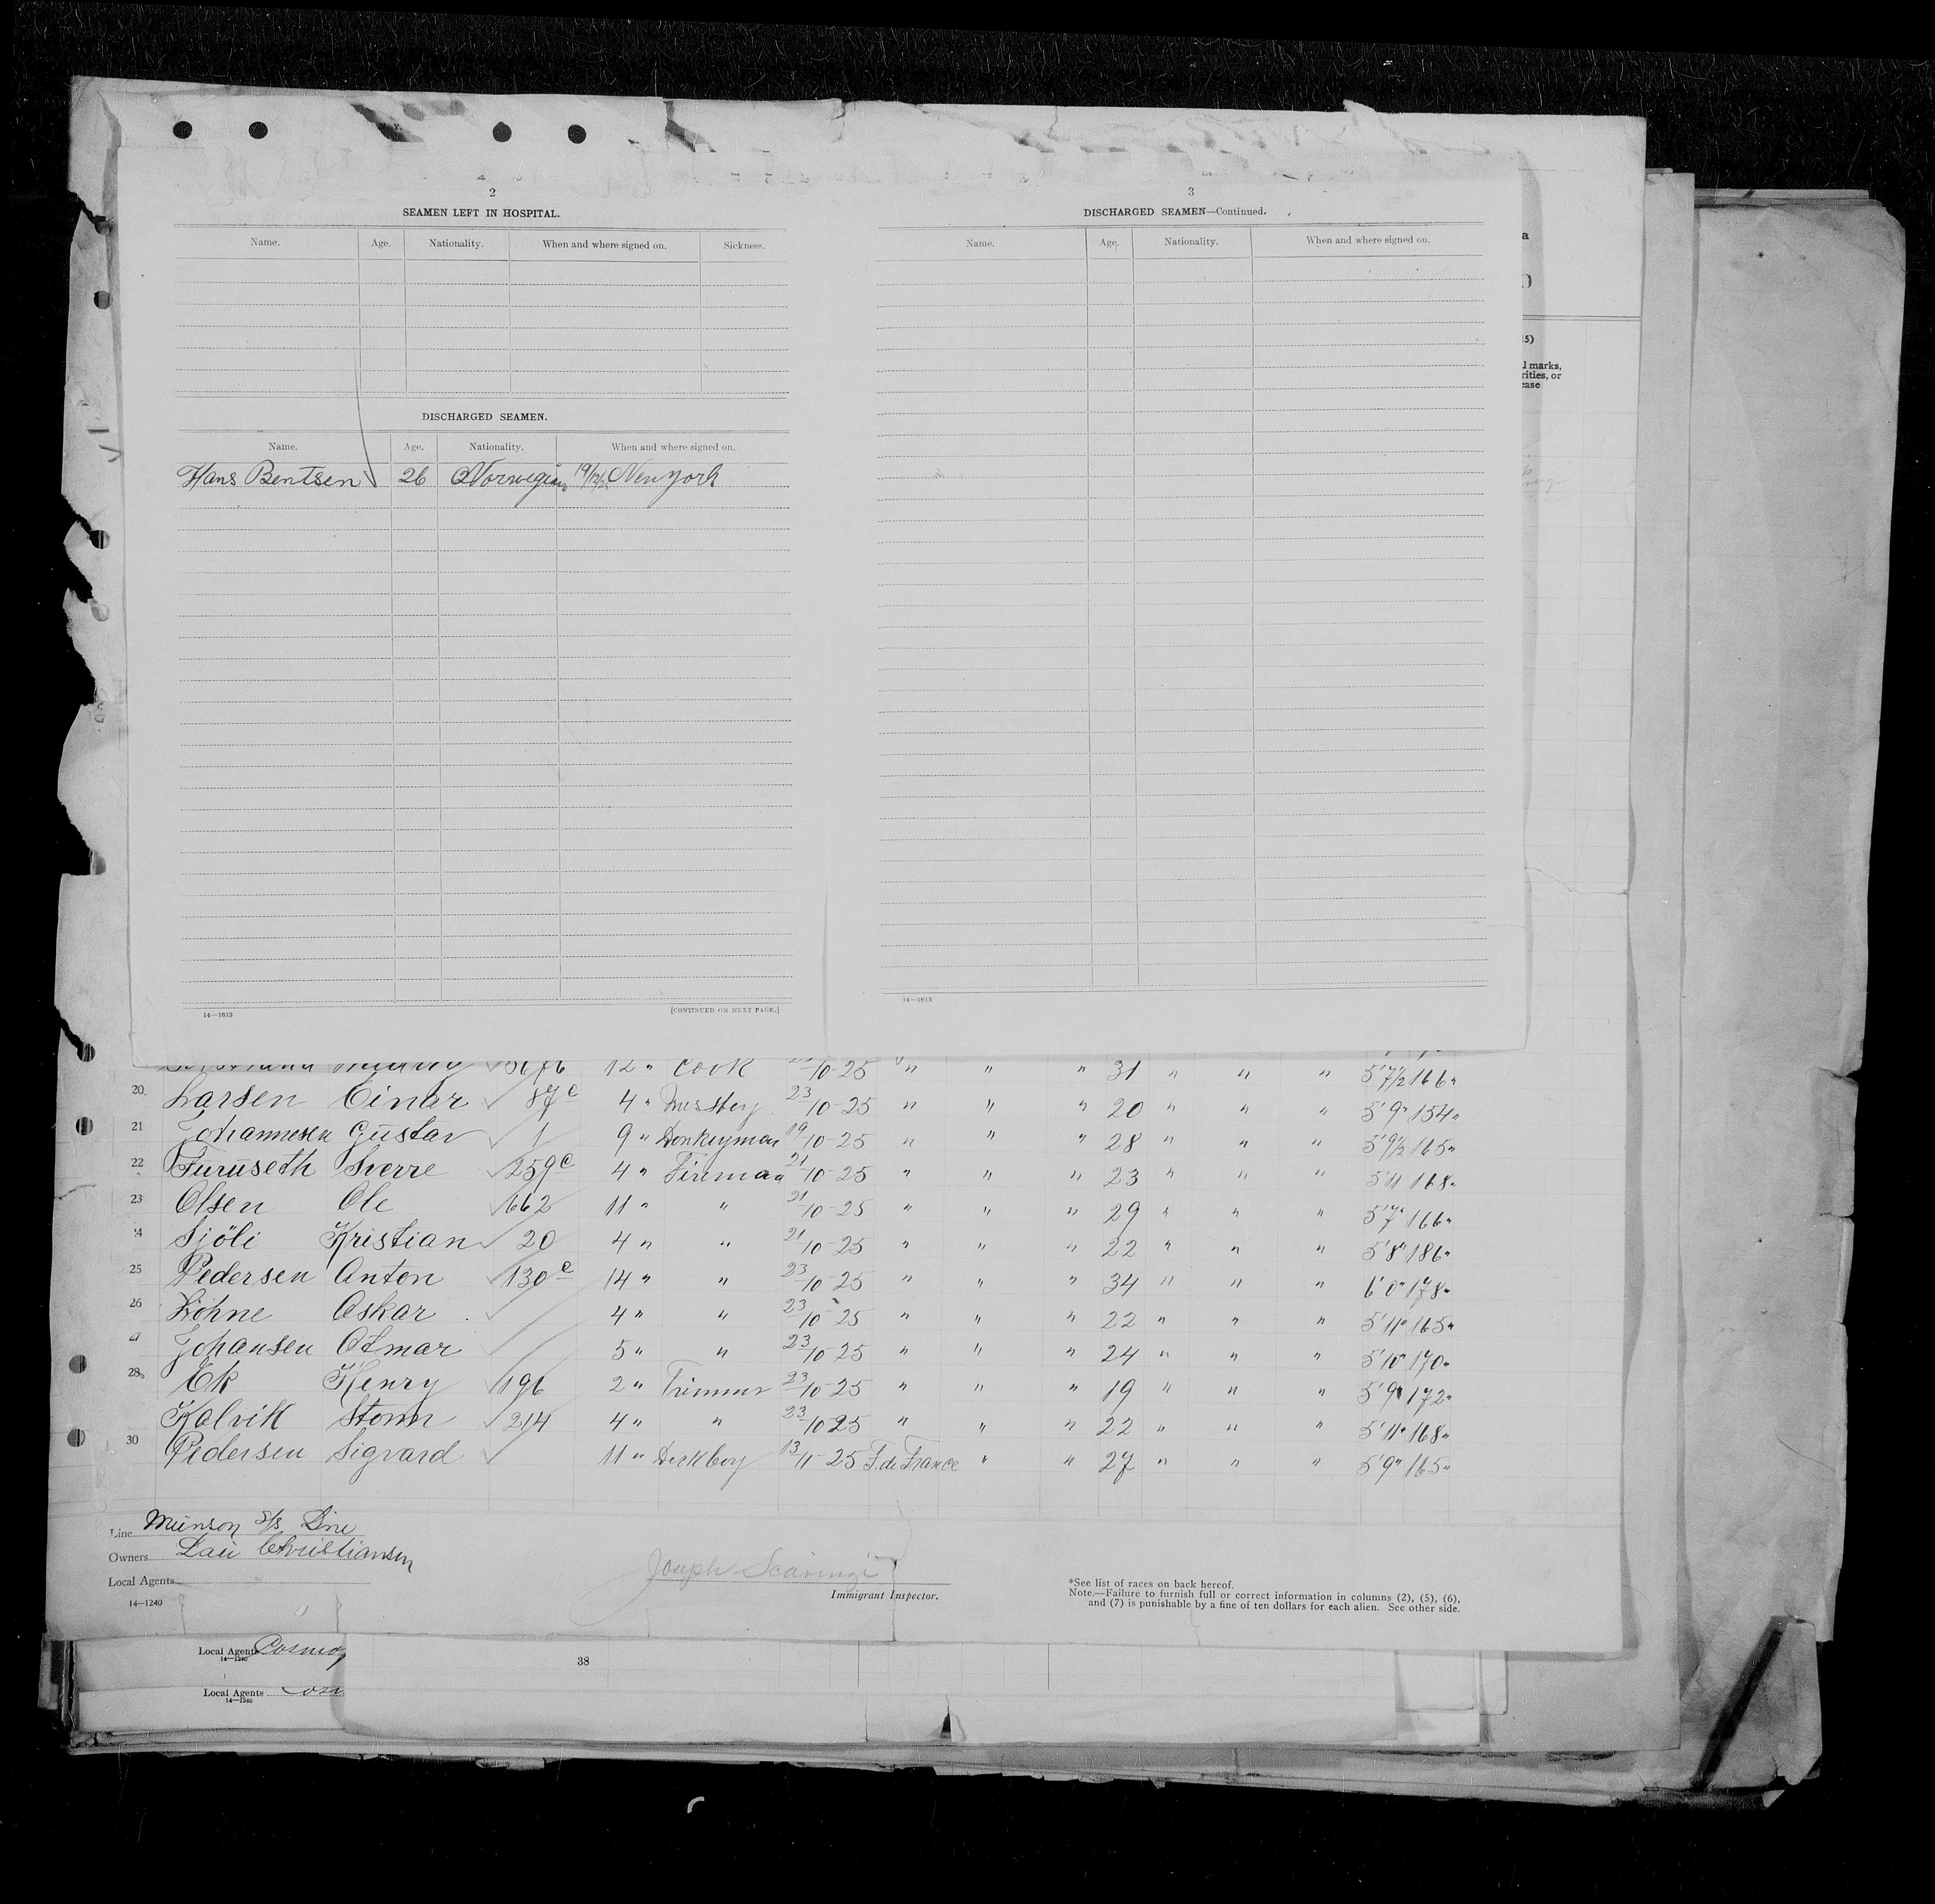 2
SEAMEN LEFT IN HOSPITAL.
Name. Age. Nationality. When and where signed on. Sickness.
DISCHARGED SEAMEN.
Name. Age. Nationality. When and where signed on.
Hans Bentsen 26 Norwegian New york
14—1613 [CONTINUED ON NEXT PAGE.]
3
DISCHARGED SEAMEN—Continued.
Name. Age. Nationality. When and where signed on.
14—1613
12 " Cook 10-25 " " " 31 " " " 5'7½ 166"
20 Larsen Einar ✓ 87c 4 " Messboy 23/10-25 " " " 20 " " " 5'9" 154"
21 Johannesen Gustav ✓ 1 9 " Donkeyman 19/10-25 " " " 28 " " " 5'9½ 165"
22 Furuseth Sverre ✓ 259c 4 " Fireman 21/10-25 " " " 23 " " " 5'11 168"
23 Olsen Ole ✓ 662 11 " " 21/10-25 " " " 29 " " " 5'7" 166"
24 Sjöli Kristian ✓ 20 4 " " 21/10-25 " " " 22 " " " 5'8" 186"
25 Pedersen Anton ✓ 130c 14 " " 23/10-25 " " " 34 " " " 6'0" 178"
26 Löhne Oskar ✓ 4 " " 23/10-25 " " " 22 " " " 5'11" 165"
27 Johansen Otmar ✓ 5 " " 23/10-25 " " " 24 " " " 5'10" 170"
28 Ek Henry ✓ 196 2 " Trimmer 23/10-25 " " " 19 " " " 5'9" 172"
Kalvik Storm ✓ 214 4 " " 23/10 25 " " " 22 " " " 5'11" 168"
30 Pedersen Sigvard ✓ 11 " Deckboy 13/11-25 F. de France " " 27 " " " 5'9" 165"
Line Munson S/S Line
Owners Lau Christiansen
Local Agents "
14—1240
Joseph Scaringi
Immigrant Inspector.
*See list of races on back hereof.
Note.—Failure to furnish full or correct information in columns (2), (5), (6),
and (7) is punishable by a fine of ten dollars for each alien. See other side.
Local Agents
14—1240
38
Local Agents
14—1240